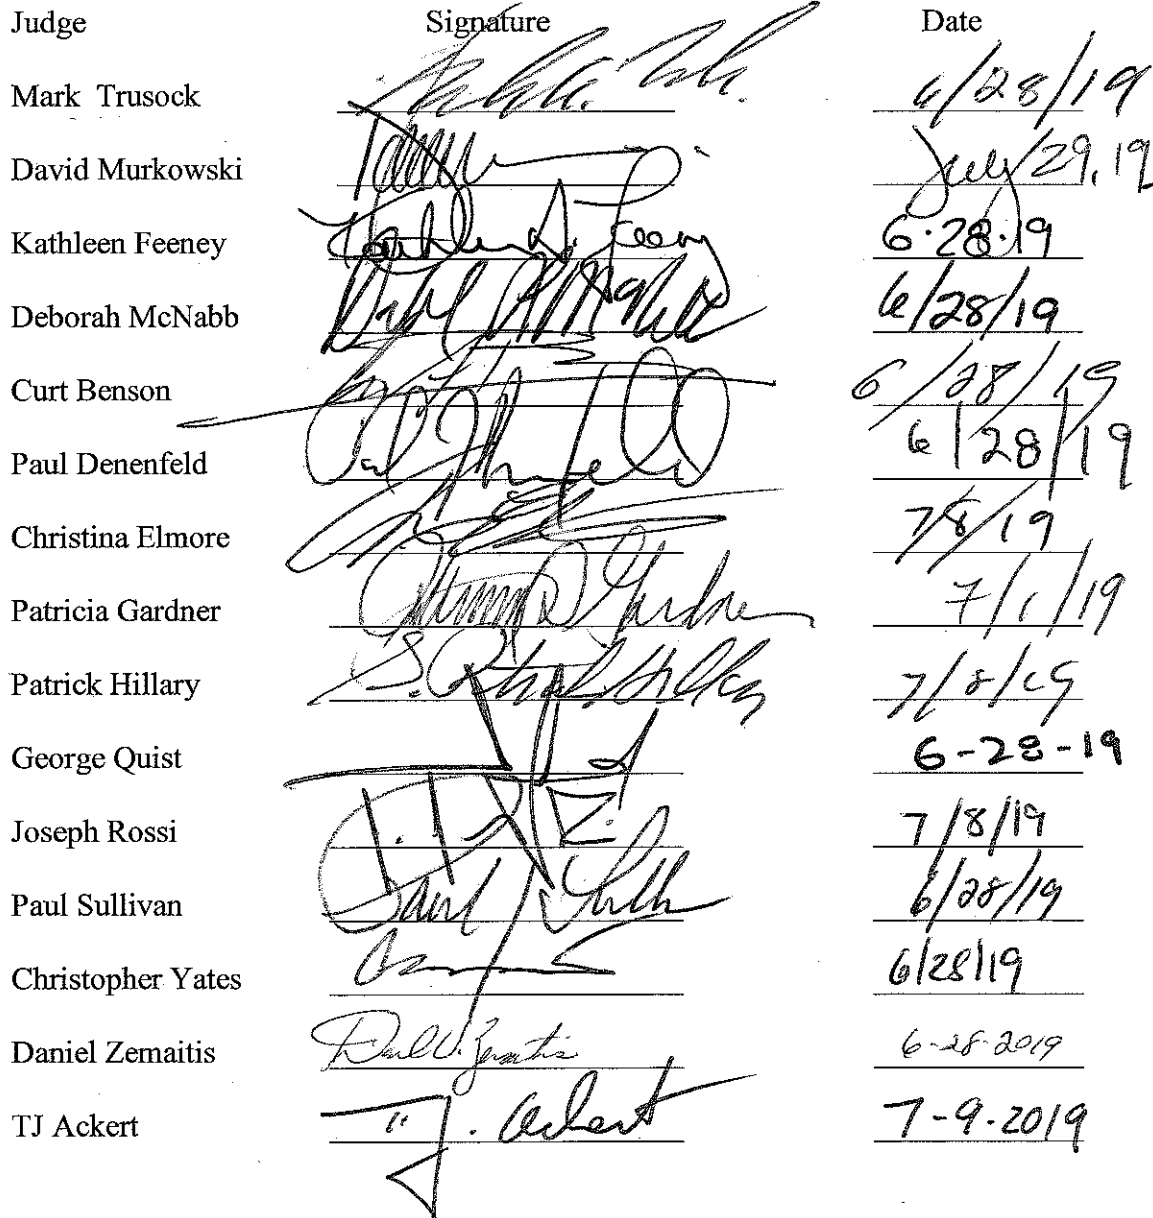 Judge Signature Date
Mark Trusock 6/28/19
David Murkowski July 29, 19
Kathleen Feeney Kathleen A. Feeney 6.28.19
Deborah McNabb 6/28/19
Curt Benson 6/28/19
Paul Denenfeld 6/28/19
Christina Elmore 7/8/19
Patricia Gardner Gardner 7/1/19
Patrick Hillary S. Patrick Hillary 7/8/19
George Quist 6-28-19
Joseph Rossi 7/8/19
Paul Sullivan Paul J 6/28/19
Christopher Yates 6/28/19
Daniel Zemaitis Daniel V. Zemaitis 6-28-2019
TJ Ackert TJ. Ackert 7-9-2019